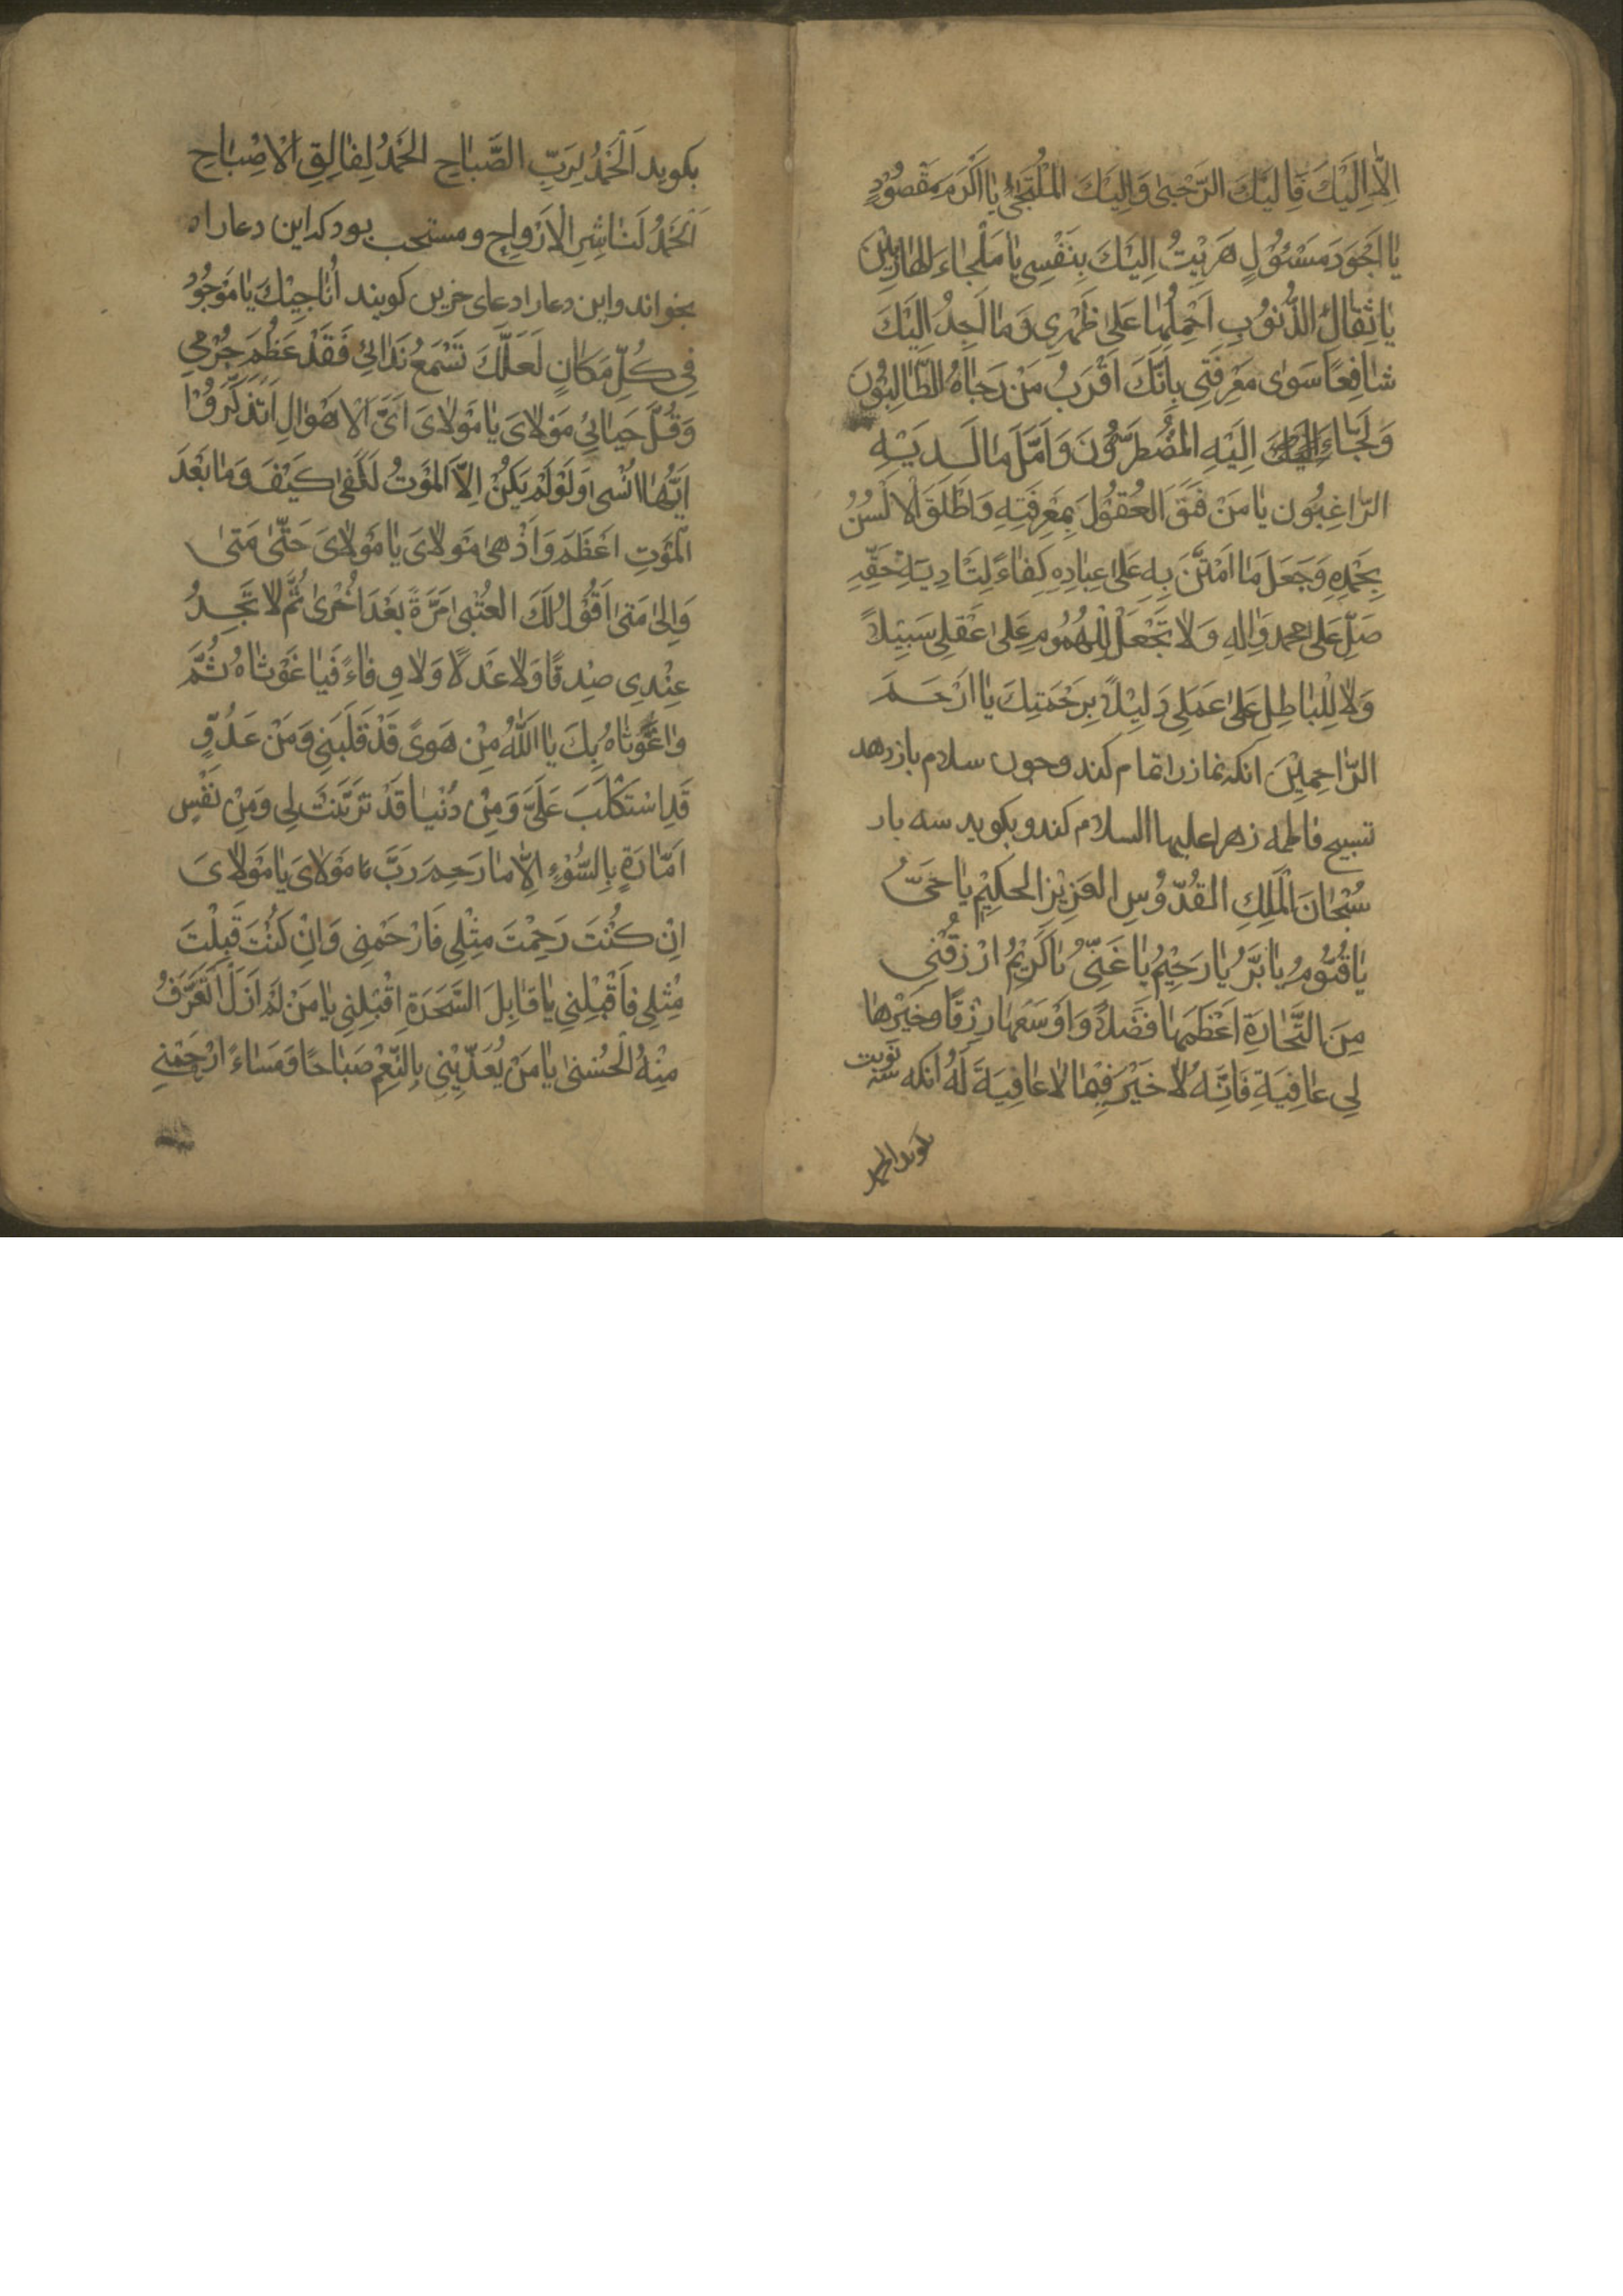 اِلّٰا اِلَيْكَ فَاِلَيْكَ الرُّجْعىٰ وَاِلَيْكَ المُلْتَجَىُٔ يٰا اَكْرَمَ مَقْصُوْدٍ
يٰا اَجْوَدَ مَسْئُوْلٍ هَرَبْتُ اِلَيْكَ بِنَفْسِى يٰا مَلْجَاءَ الهٰارِبِيْنَ
يٰا ثِقٰالِ الذُّنُوْبِ اَحْمِلُهٰا عَلىٰ ظَهْرِى وَمٰا اَجِدُ اِلَيْكَ
شٰافِعًا سَوٰى مَعْرِفَتِى بِاَنَّكَ اَقْرَبُ مَنْ رَجٰاهُ الطّٰالِبُوْنَ
وَلَجٰاءَ اِلَيْهِ المُضْطَرُّوْنَ وَاَمَّلَ مٰا لَدَيْهِ
الرّٰاغِبُون يٰا مَنْ فَتَقَ العُقُوْلَ بِمَعْرِفَتِهِ وَاَطْلَقَ الْاَلْسُنَ
بِحَمْدِهِ وَجَعَلَ مٰا امْتَنَّ بِهِ عَلىٰ عِبٰادِهِ كِفٰاءً لِتَادِيَةِ حَقِّهِ
صَلِّ عَلىٰ محمد وَاٰلِهِ وَلٰا تَجْعَلْ لِلْهُمُومِ عَلىٰ عَقْلِى سَبِيْلاً
وَلٰا لِلْبٰاطِلِ عَلىٰ عَمَلِى دَلِيْلاً بِرَحْمَتِكَ يٰا اَرْحَمَ
الرّٰاحِمِيْنَ انكه نماز را تمام كند وچون سلام باز دهد
تسبيح فاطمه زهرا عليها السلام كند و بكويد سه بار
سُبْحٰانَ الْمَلِكِ القُدُّوْسِ العَزِيْزِ الحكِيْمِ يٰا حَىُّ
يٰا قَيُّوْمُ يٰا بَرُّ يٰا رَحِيْمُ يٰا غَنِىُّ يٰا كَرِيْمُ ارْزُقْنِى
مِنَ التِّجٰارَةِ اَعْظَمَهٰا فَضْلاً وَاَوْسَعَهٰا رِزْقًا وخَيْرَهٰا
لِى عٰافِيَةً فَاِنَّهُ لٰا خَيْرَ فِيْمٰا لٰا عٰافِيَةَ لَهُ انكه
بكويد الحمد
بكويد اَلْحَمْدُ لِرَبِّ الصَّبٰاحِ الحَمْدُ لِفٰالِقِ الْاِصْبٰاحِ
اَلْحَمْدُ لنٰاشِرِ الْاَرْوٰاحِ و مستحب بود كه اين دعا را ه
بخواند و اين دعا را دعاى حزين كويند اُنٰاجِيْكَ يٰا مَوْجُوْدُ
فِى كُلِّ مَكٰانٍ لَعَلَّكَ تَسْمَعُ نَدٰائِى فَقَدْ عَظُمَ جُرْمِى
وَقَلَّ حَيٰائِى مَوْلاٰىَ يٰا مَوْلاٰىَ اَىَّ الْاَهْوٰالِ اَتَذَكَّرُ وَ
اَيَّهٰا اَنْسٰى وَلَوْ لَمْ يَكُنْ اِلَّا المَوْتُ لَكَفىٰ كَيْفَ وَمٰا بَعْدَ
الْمَوْتِ اَعْظَمُ وَاَدْهىٰ مَوْلاٰىَ يٰا مَوْلاٰىَ حَتّىٰ مَتىٰ
وَاِلىٰ مَتىٰ اَقُوْلُ لَكَ العُتْبىٰ مَرَّةً بَعْدَ اُخْرىٰ ثُمَّ لٰا تَجِدُ
عِنْدِى صِدْقًا وَلٰا عَدْلًا وَلٰا وِفٰاءً فَيٰا غَوْثٰاهُ ثُمَّ
وٰاغَوْثٰاهُ بِكَ يٰا اَللّٰهُ مِنْ هَوىً قَدْ قَلَبَنِى وَمَنْ عَدُوٍّ
قَدِ اسْتَكْلَبَ عَلَىَّ وَمِنْ دُنْيٰا قَدْ تَزَيَّنَتْ لِى وَمِنْ نَفْسٍ
اَمّٰارَةٍ بِالسُّوْءِ اِلّٰا مٰا رَحِمَ رَبّى مَوْلاٰىَ يٰا مَوْلاٰىَ
اِنْ كُنْتَ رَحِمْتَ مِثْلِى فَارْحَمْنِى وَاِنْ كُنْتَ قَبِلْتَ
مِثْلِى فَاَقْبِلْنِى يٰا قٰابِلَ السَّحَرَةِ اِقْبِلْنِى يٰا مَنْ لَمْ اَزَلْ اَتَعَرَّفُ
مِنْهُ الْحُسْنىٰ يٰا مَنْ يُغَذِّيْنِى بِالنِّعَمِ صَبٰاحًا وَمَسٰاءً ارْحَمْنِى